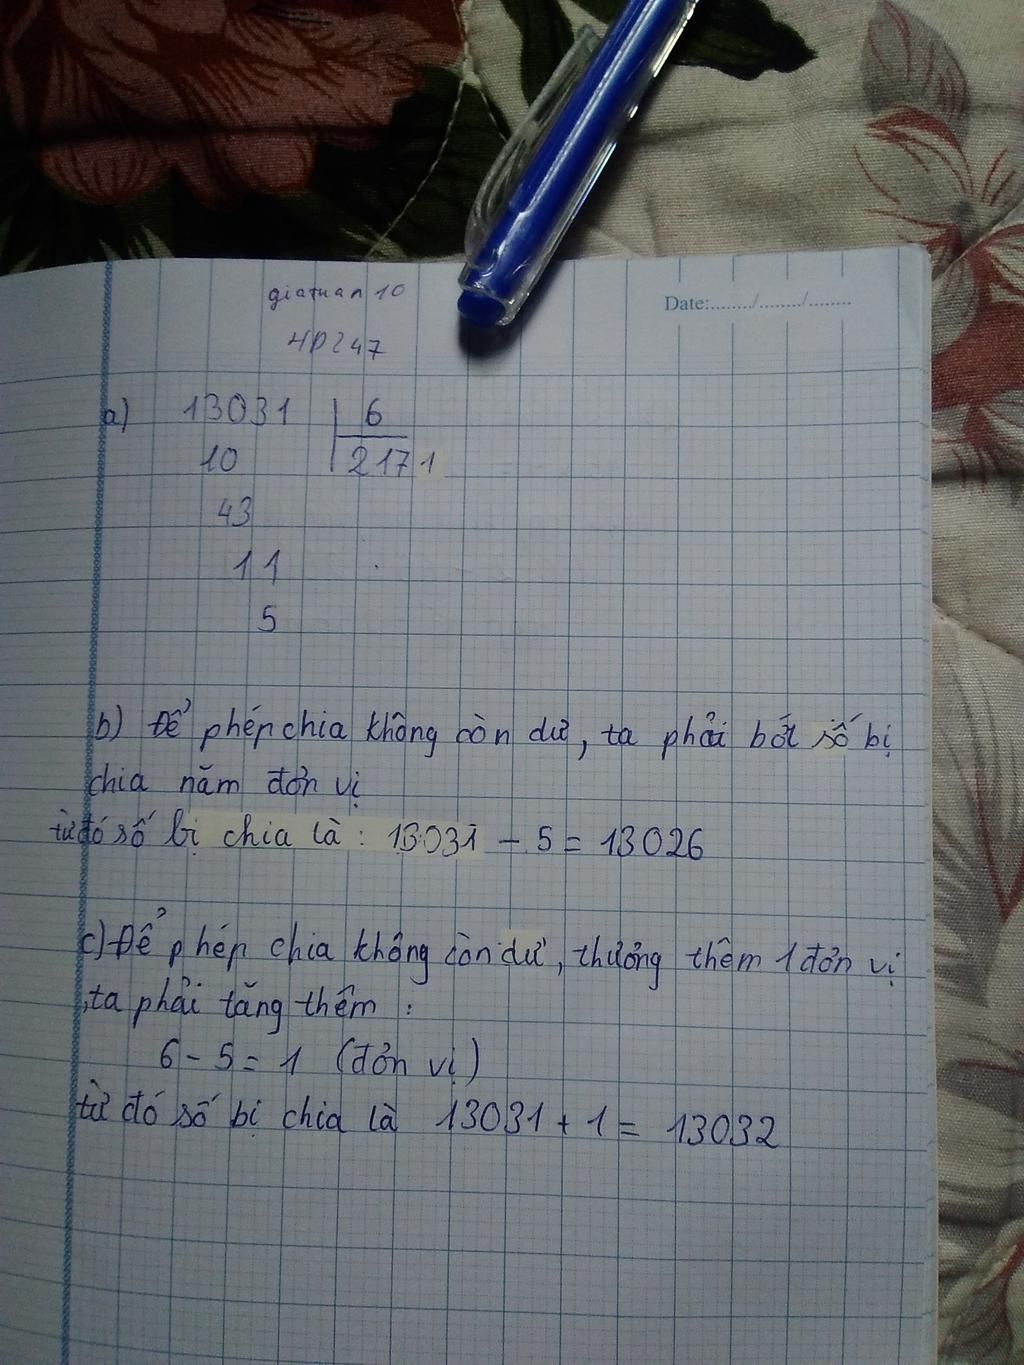 giatuan 10
HD247
Date:......../......../........
a) 13031 6
10 2171
43
11
5
b) Để phép chia không còn dư, ta phải bớt số bị
chia năm đơn vị
từ đó số bị chia là : 13031 - 5 = 13026
c) Để phép chia không còn dư, thương thêm 1 đơn vị
,ta phải tăng thêm :
6 - 5 = 1 (đơn vị)
từ đó số bị chia là 13031 + 1 = 13032